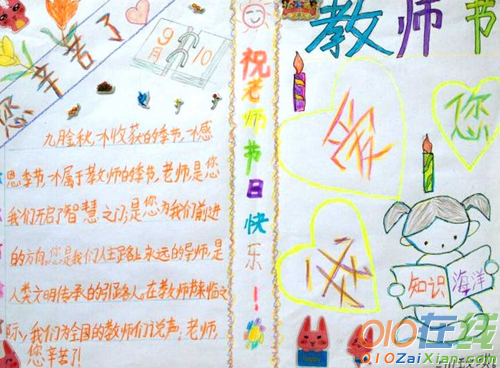 您辛苦了
9月10
九月金秋,收获的季节,感
恩季节,属于教师的季节,老师,是您
我们开启了智慧之门;是您为我们前进
的方向,您是我们人生路上永远的导师,是
人类文明传承的引路人,在教师节来临之
际,我们为全国的教师们说声,老师,
您辛苦了!
祝老师节日快乐!
教师节
您
知识海洋
010在线
010ZaiXian.com